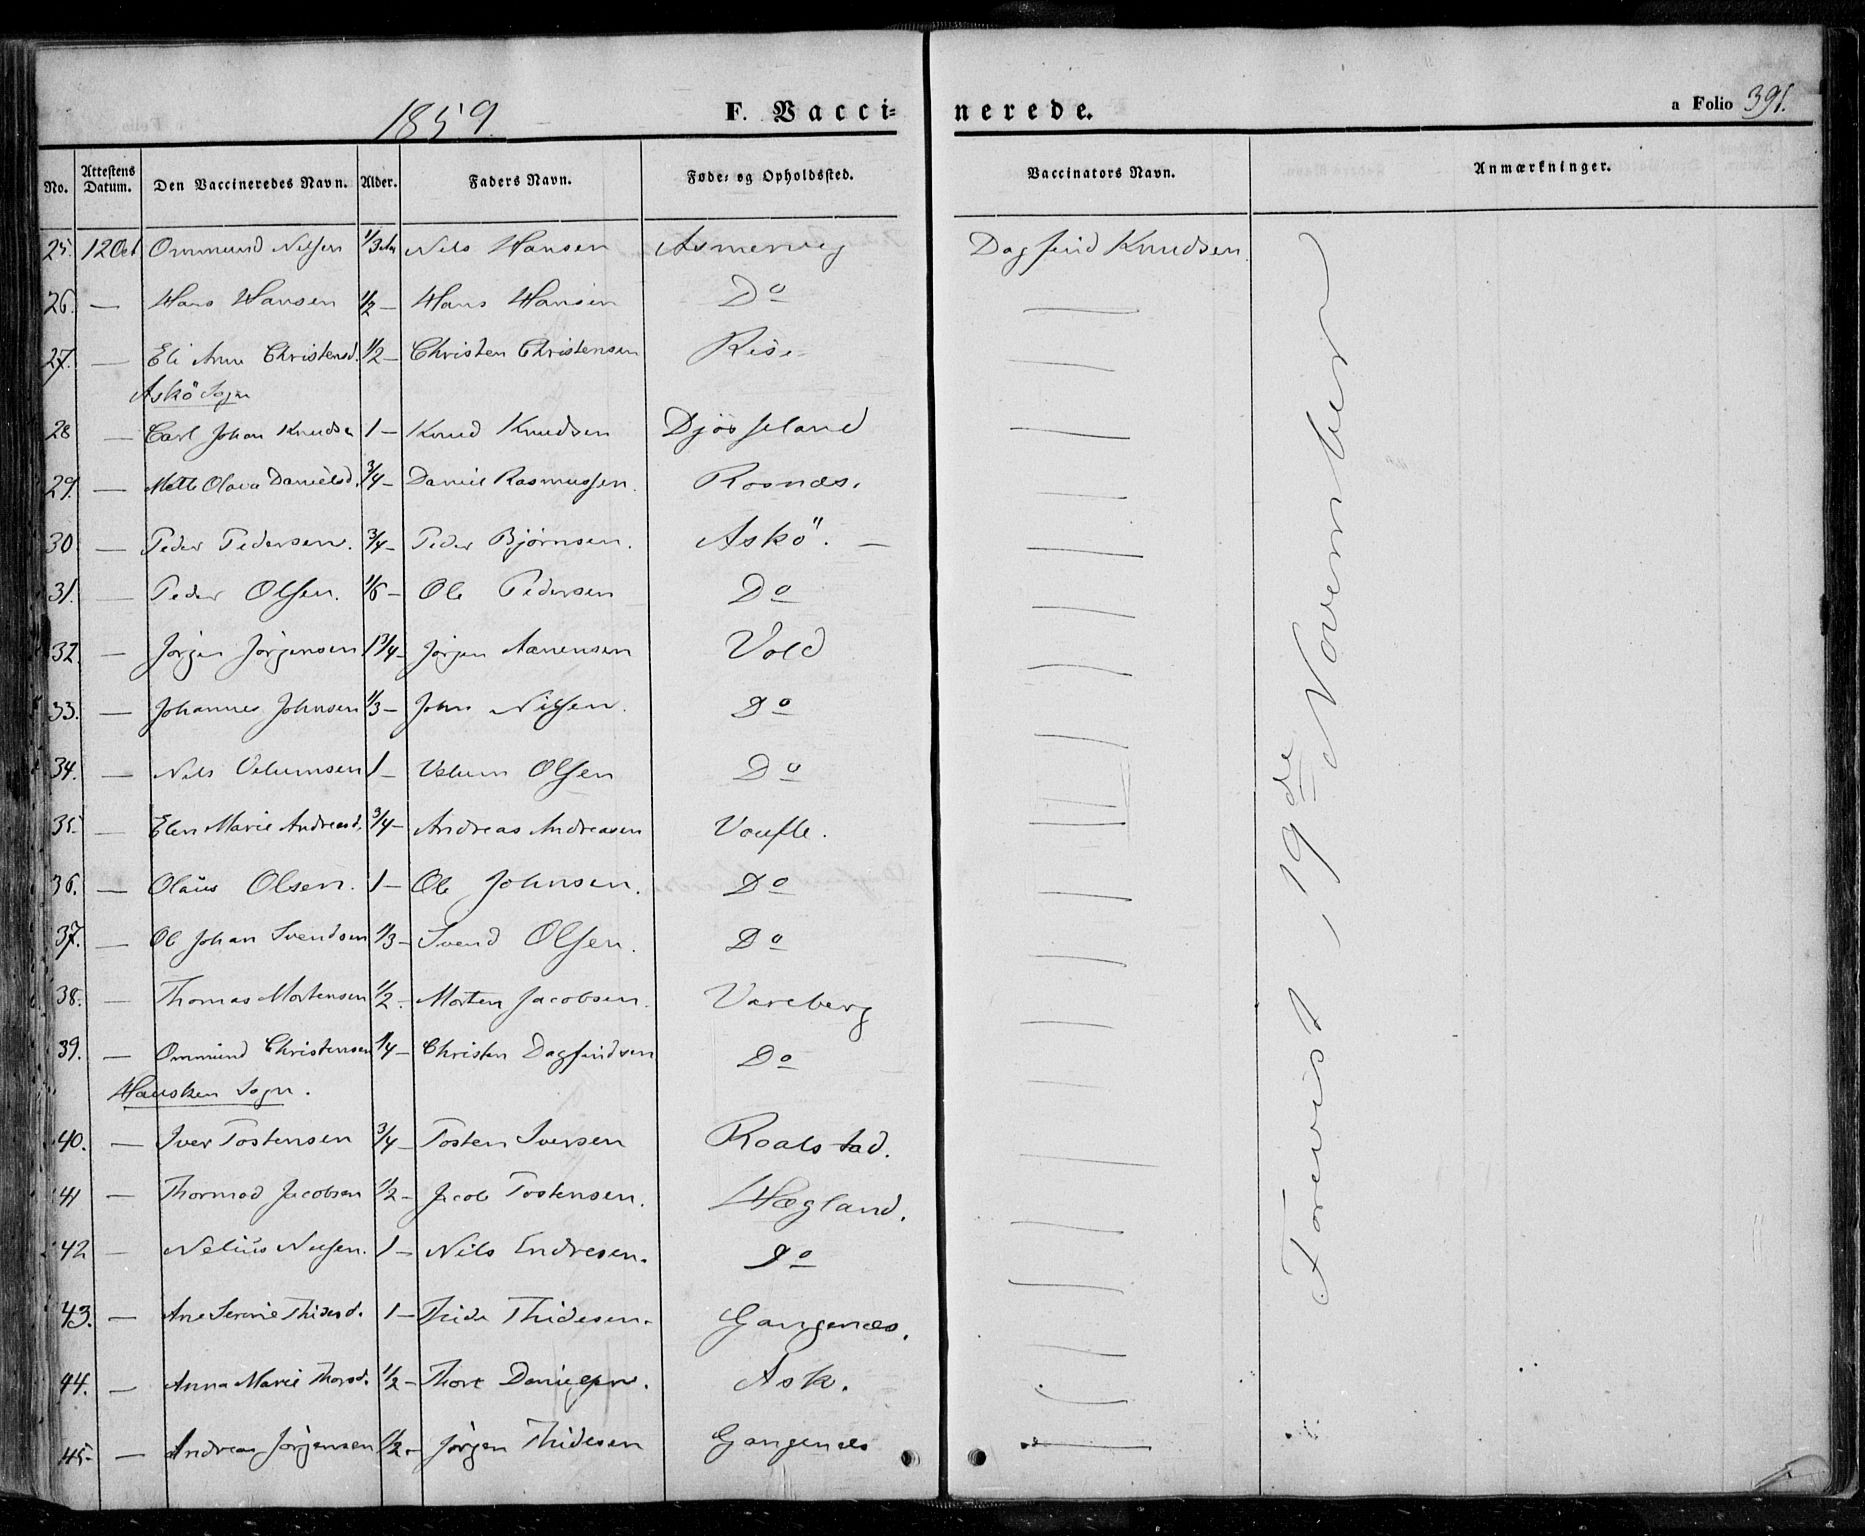 1859. F. Vaccinerede. a Folio 391.
No. Attestens Datum. Den Vaccineredes Navn. Alder. Faders Navn. Føde- og Opholdssted. Vaccinators Navn. Anmærkninger.
25. 12 Oct Ommund Nilsen 1/3 Nils Hansen Asmervig Dagfind Knudsen
26. — Hans Hansen 1/2 — Hans Hansen Do —
27. — Eli Anne Christensd. 1/2 — Christen Christensen —
Askö Sogn
28 — Carl Johan Knudsen 1 — Knud Knudsen —
29. — Mette Olava Danielsd. 3/4 — Daniel Rasmussen. Rosnæs. —
30 — Peder Pedersen. 3/4 — Peder Bjørnsen. Askö. — —
31. — Peder Olsen. 1/6 — Ole Pedersen Do —
32. — Jørgen Jørgensen 1 3/4 — Jørgen Aanensen Vold —
33. — Johannes Johnsen 1/3 — John Nilsen. Do —
34. — Nils 1 — Olsen Do —
35. — Elen Marie Andreasd. 3/4 — Andreas Andreasen —
36. — Olaus Olsen. 1 — Ole Johnsen. Do —
37. — Ole Johan Svendsen 1/3 — Svend Olsen. Do —
38. — Thomas Mortensen 1/2. Morten Jacobsen. Vareberg —
39. — Ommund Christensen 1/4 — Christen Dagfindsen Do —
Hausken Sogn.
40. — Iver Tostensen 3/4 — Tosten Iversen Roalstad. —
41 — Thormod Jacobsen 1/2 — Jacob Tostensen. Hægland. —
42 — Nelius Nilsen. 1 — Nils Endresen. Do —
43. — Ane Serine Thidesd. 1 — Thide Thidesen. Gangenæs. —
44. — Anna Marie Thorsd. 1/2 — Thore Ask. —
45 — Andreas Jørgensen 1/2 — Jørgen Thidesen Gangenæs —
Forevist, 19de November